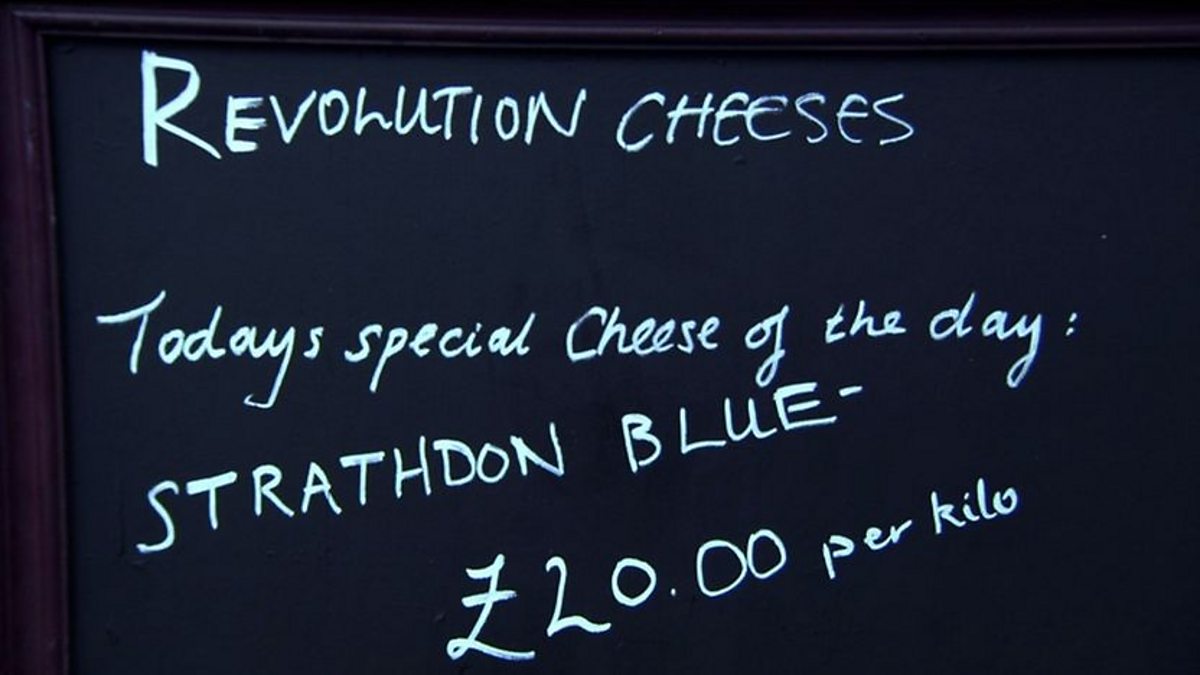 REVOLUTION CHEESES
Todays special Cheese of the day:
STRATHDON BLUE-
£20.00 per kilo